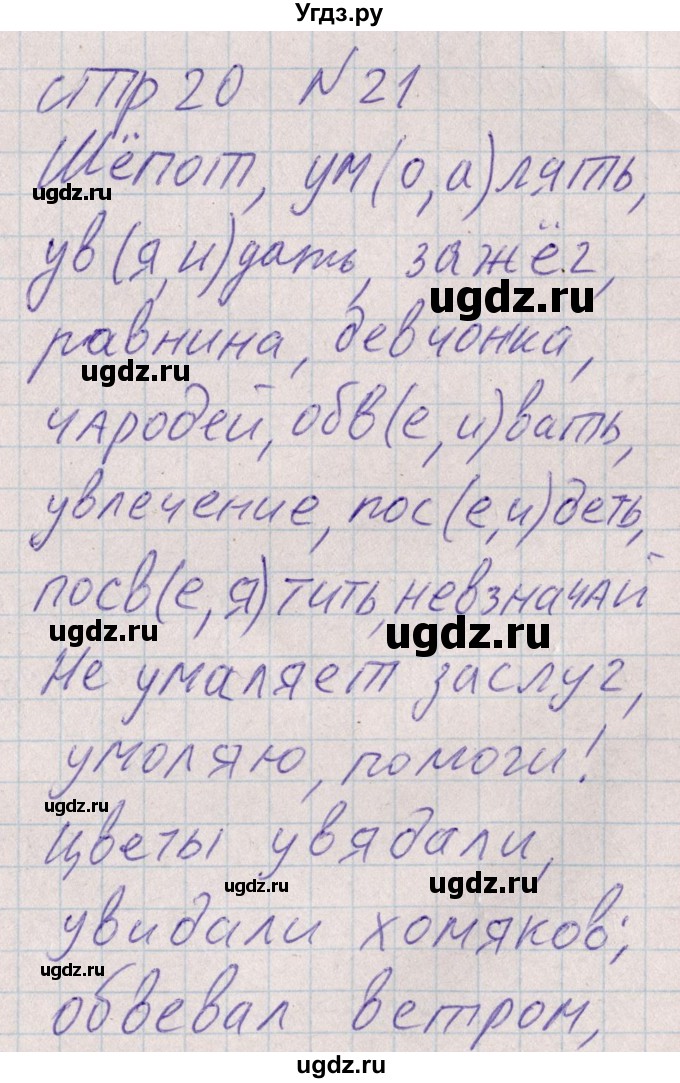 Угдз.ру
стр 20 № 21
Шёпот, ум(о,а)лять,
ugdz.ru
ув(я,и)дать, зажёг,
ugdz.ru
равнина, девчонка,
ugdz.ru
чародей, обв(е,и)вать,
увлечение, пос(е,и)деть,
посв(е,я)тить, невзначай
ugdz.ru
ugdz.ru
Не умаляет заслуг,
умоляю, помоги!
ugdz.ru
Цветы увядали,
ugdz.ru
ugdz.ru
увидали хомяков;
ugdz.ru
обвевал ветром,
ugdz.ru